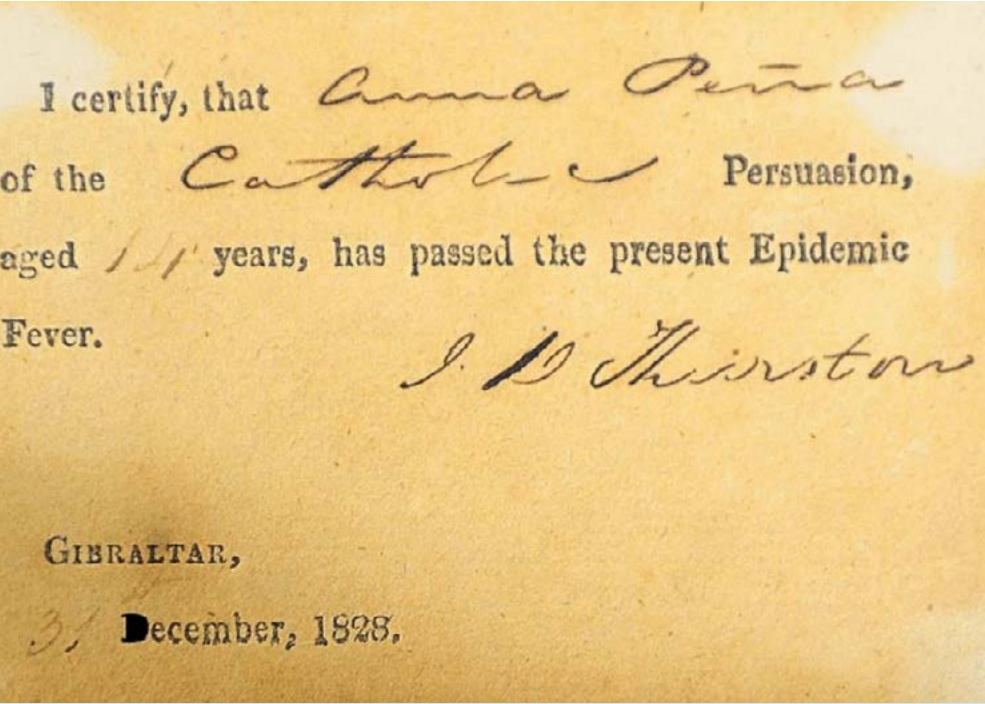 I certify, that Anna Peña
of the Catholic Persuasion,
aged 14 years, has passed the present Epidemic
Fever.
J. D Thirston
GIBRALTAR,
31 December, 1828.